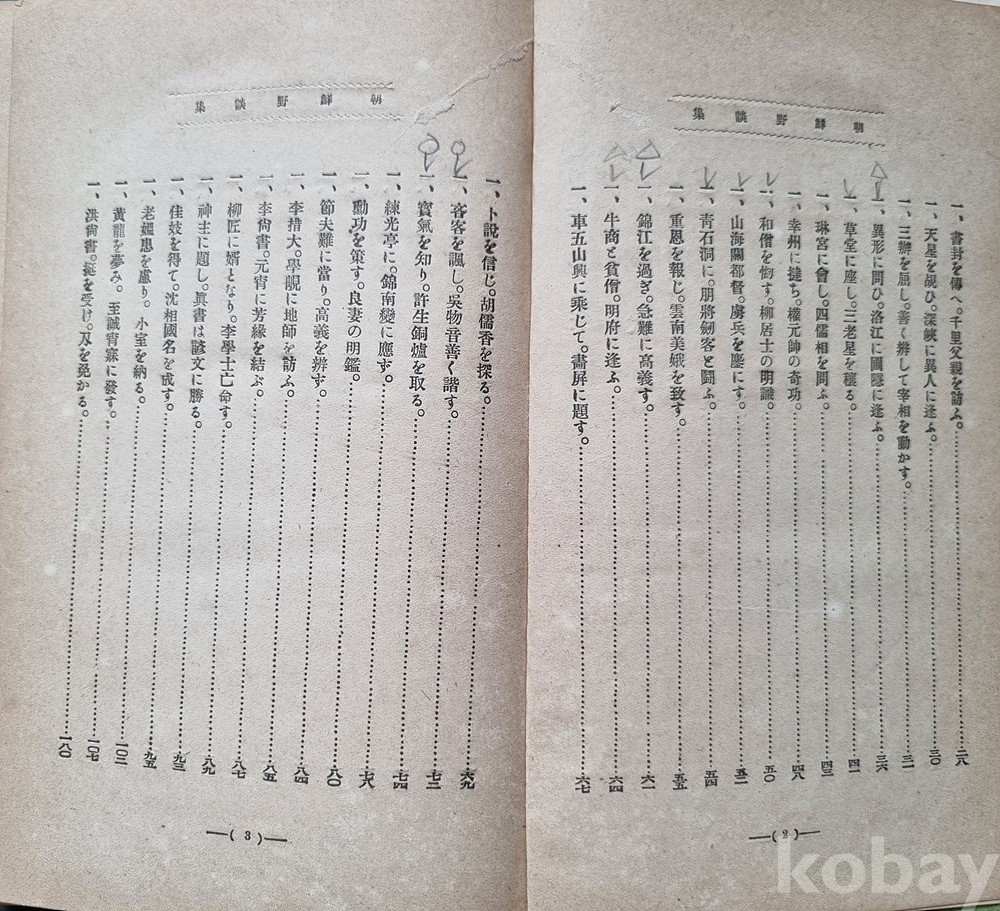 朝鮮野談集
一、書封を傳へ。千里父親を訪ふ。……二八
一、天星を覘ひ。深峽に異人に逢ふ。……三〇
一、三獅を屈し。善く辨して宰相を動かす。……三二
一、異形に問ひ。洛江に圃隱に逢ふ。……三六
一、草堂に座し。三老星を禳る。……四一
一、琳宮に會し。四儒相を問ふ。……四三
一、幸州に撻ち。權元帥の奇功。……四八
一、和僧を㤼す。柳居士の明識。……五〇
一、山海關都督。虜兵を鏖にす。……五二
一、靑石洞に。朋將劒客と鬪ふ。……五四
一、重恩を報じ。雲南美娥を致す。……五五
一、錦江を過ぎ。急難に高義す。……六一
一、牛商と貧僧。明府に逢ふ。……六四
一、車五山興に乘じて。畵屏に題す。……六七
—( 2 )—
朝鮮野談集
一、卜說を信じ。胡儒香を探る。……六九
一、吝客を諷し。吳物音善く諧す。……七二
一、寶氣を知り。許生銅爐を取る。……七三
一、練光亭に。錦南變に應ず。……七四
一、勳功を策す。良妻の明鑑。……七八
一、節夫難に當り。高義を辨ず。……八〇
一、李措大。學覡に地師を訪ふ。……八四
一、李尙書。元宵に芳緣を結ぶ。……八五
一、柳匠に婿となり。李學士亡命す。……八七
一、神主に題し。眞書は諺文に勝る。……八九
一、佳妓を得て。沈相國名を成す。……九三
一、老嫗患を慮り。小室を納る。……九五
一、黃龍を夢み。至誠宵寐に發す。……一〇三
一、洪尙書。挺を受け。刄を免かる。……一〇七
……一八〇
—( 3 )—
kobay